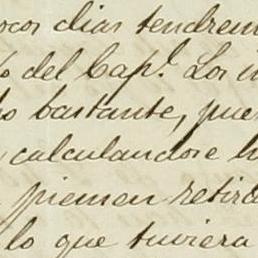 ocos dias tendrem
o del Cap.l Los i
do bastante, pue
calculandose h
piensan retira
lo que tuviera